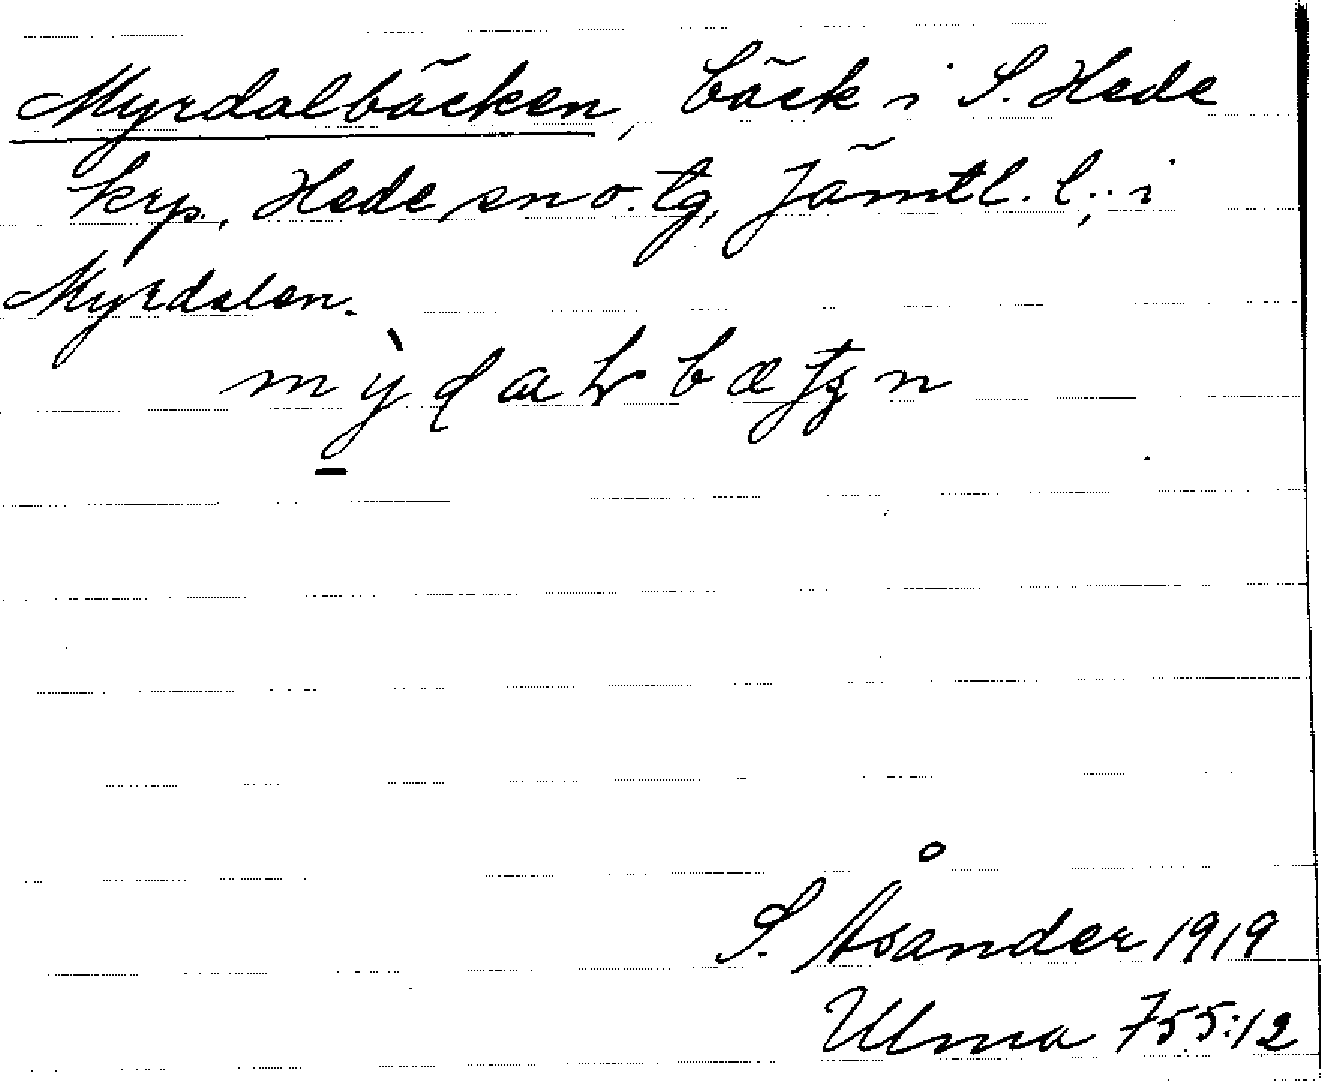 Myrdalbäcken, bäck i S. Hede
krp., Hede sn o. tg, Jämtl. l.; i
Myrdalen.
S. Åsander 1919
Ulma 755:12